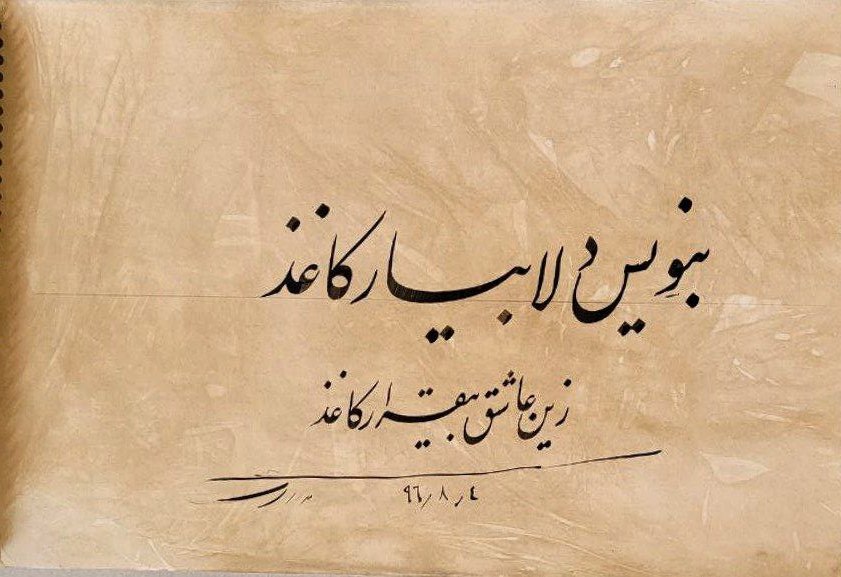 بنویس دلا بیار کاغذ
زین عاشق بیقرار کاغذ
۹۶٫۸٫۴